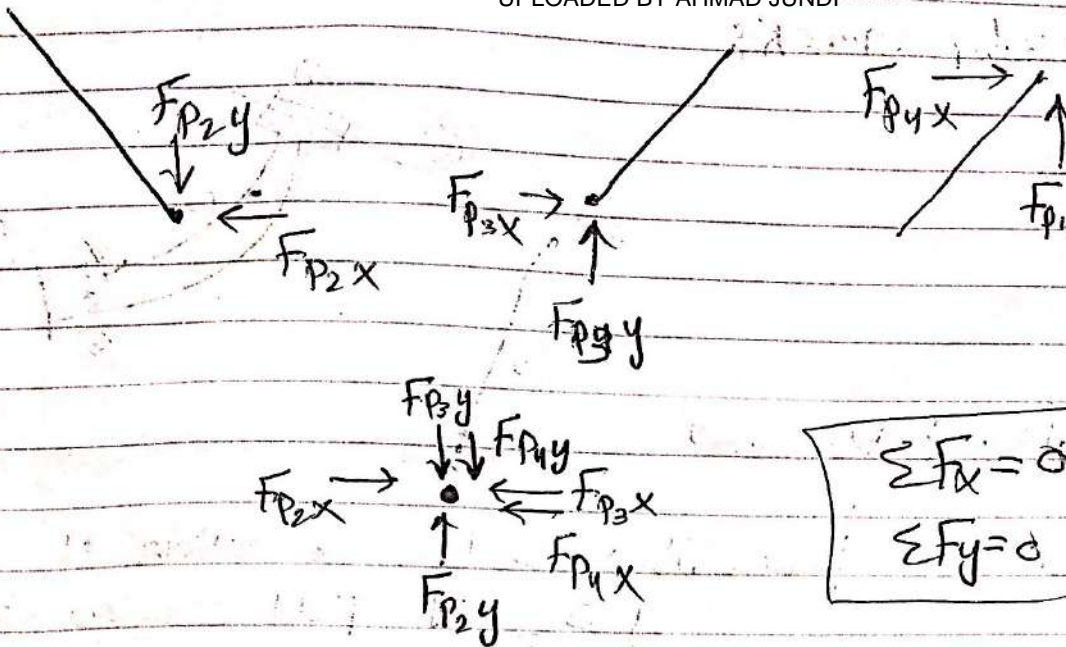 UPLOADED BY AHMAD JUNDI
Fp2y
Fp2x
Fp3x
Fp3y
Fp4x
Fp3y
Fp4y
Fp2x
Fp3x
Fp4x
Fp2y
ΣFx=0
ΣFy=0